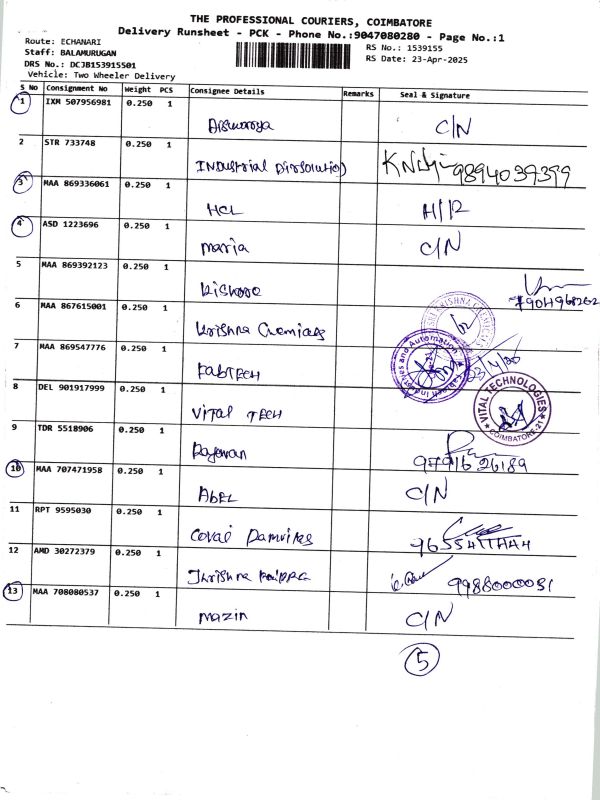 THE PROFESSIONAL COURIERS, COIMBATORE
Delivery Runsheet - PCK - Phone No.:9047080280 - Page No.:1
Route: ECHANARI
Staff: BALAMURUGAN
DRS No.: DCJB153915501
Vehicle: Two Wheeler Delivery
RS No.: 1539155
RS Date: 23-Apr-2025
S No Consignment No Weight PCS Consignee Details Remarks Seal & Signature
1 IXM 507956981 0.250 1
C/N
2 STR 733748 0.250 1
INDUSTRIAL
9894039399
3 MAA 869336061 0.250 1
HCL
4 ASD 1223696 0.250 1
maria C/N
5 MAA 869392123 0.250 1
Kishore
6 MAA 867615001 0.250 1
Krishna Chemicals
7 MAA 869547776 0.250 1
FabTECH
Industries and Automation
8 DEL 901917999 0.250 1
VITAL TECH
VITAL TECHNOLOGIES
COIMBATORE-21
9 TDR 5518906 0.250 1
9791626189
10 MAA 707471958 0.250 1
ABEL C/N
11 RPT 9595030 0.250 1
Covai
12 AMD 30272379 0.250 1
13 MAA 708080537 0.250 1
mazin C/N
5